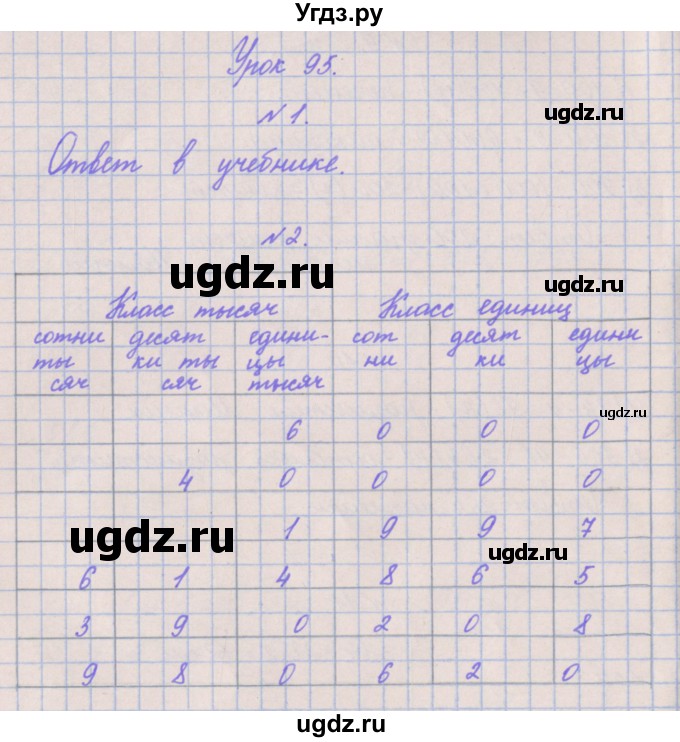 Угдз.ру
Урок 95.
ugdz.ru
№1.
Ответ в учебнике.
№2.
ugdz.ru
ugdz.ru
Класс тысяч Класс единиц
сотни десят едини- сот десят едини
ты ки ты цы ни ки цы
сяч сяч тысяч
ugdz.ru
6 0 0 0
4 0 0 0 0
ugdz.ru
1 9 9 7
ugdz.ru
6 1 4 8 6 5
3 9 0 2 0 8
9 8 0 6 2 0
ugdz.ru